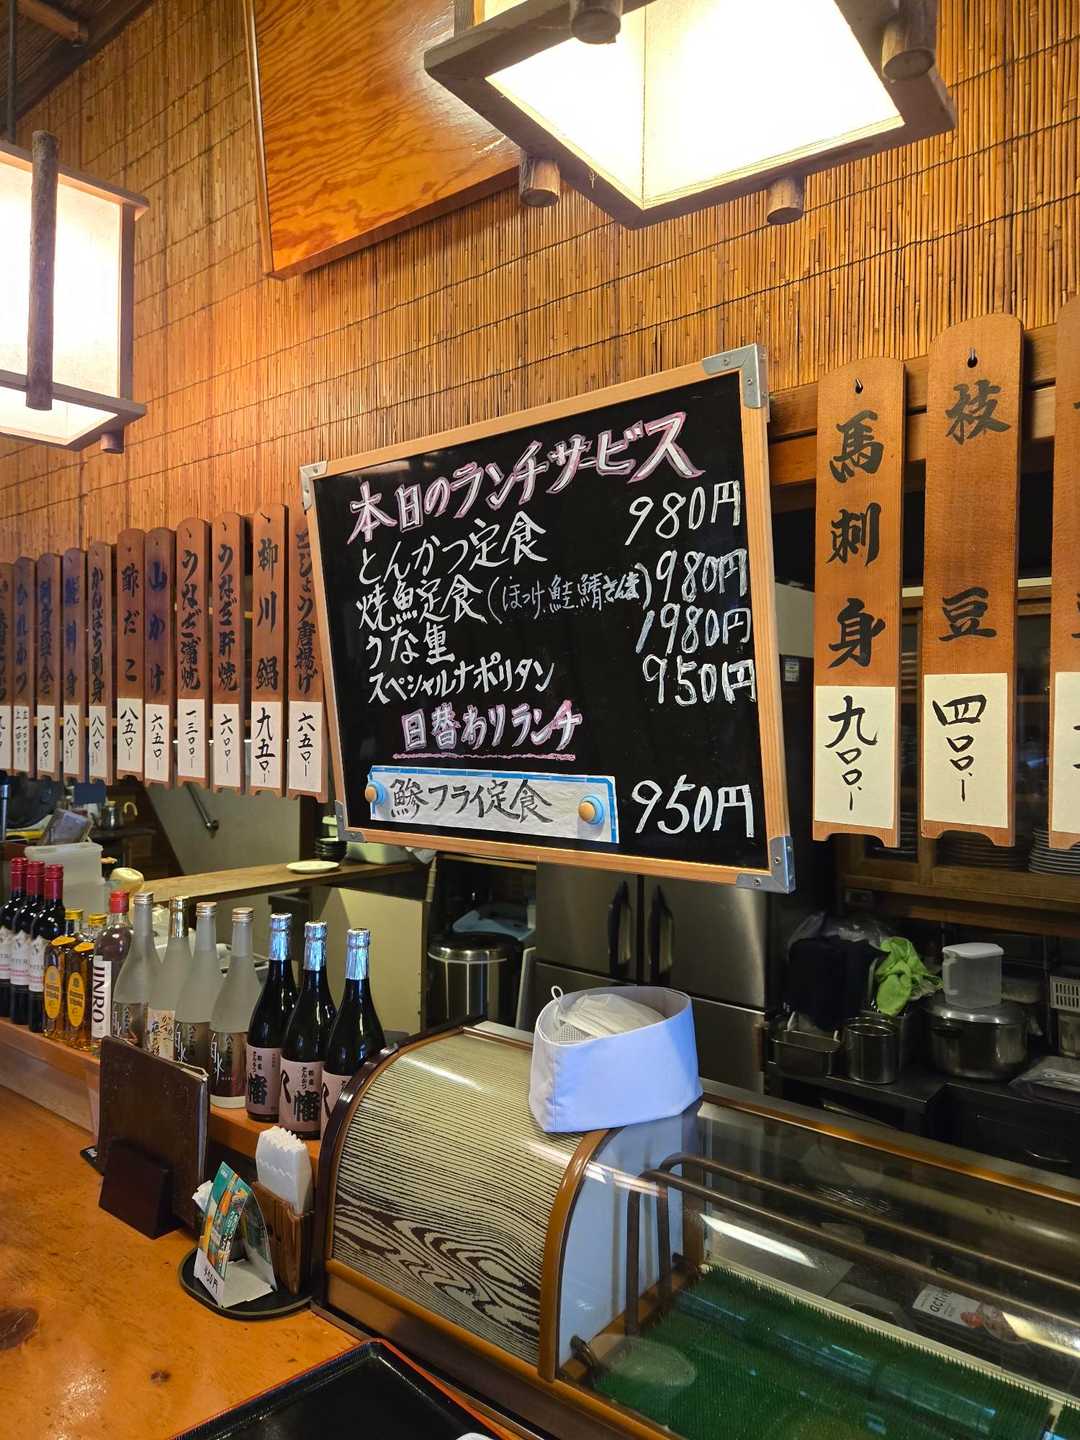 本日のランチサービス
とんかつ定食 980円
焼魚定食(ほっけ、鮭、鯖、さんま) 980円
うな重 1980円
スペシャルナポリタン 950円
日替わりランチ
鯵フライ定食 950円
枝豆 四〇〇.-
馬刺身 九〇〇.-
どじょう唐揚げ 六五〇.-
柳川鍋 九五〇.-
うなぎ肝焼 六〇〇.-
うなぎ蒲焼 一三〇〇.-
山かけ 六五〇.-
酢だこ 八五〇.-
かんぱち刺身
JINRO
八幡
八幡